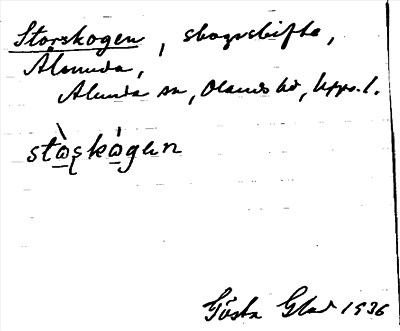 Storskogen, skogsskifte,
Ålsunda,
Alunda sn, Olands hd, Upps. l.
stɷ̀ʂkɷ̀gen
Gösta Glad 1936